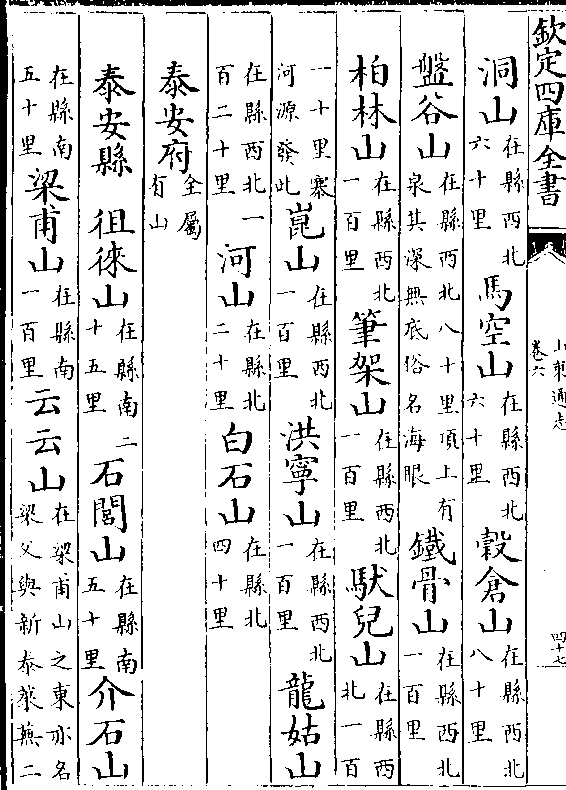 欽定四庫全書
山東通志
卷六
四十七
洞山在縣西北六十里馬空山在縣西北六十里穀倉山在縣西北八十里
盤谷山在縣西北八十里頂上有泉其深無底俗名海眼鐵骨山在縣西北一百里
柏林山在縣西北一百里筆架山在縣西北一百里馱兒山在縣西北一百
一十里寨河源發此崑山在縣西北一百里洪寧山在縣西北一百里龍姑山
在縣西北一百二十里河山在縣北二十里白石山在縣北四十里
泰安府全屬有山
泰安縣徂徠山在縣南二十五里石閭山在縣南五十里介石山
在縣南五十里梁甫山在縣南一百里云云山在梁甫山之東亦名梁父與新泰萊蕪二